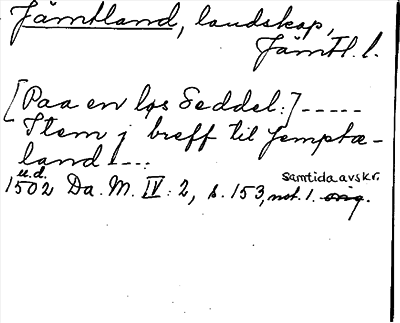 Jämtland, landskap,
Jämtl. l.
[Paa en løs Seddel:] -----
Item j breff til Jemptæ-
land - - -.
u.d.
samtida avskr.
1502 Da. M. IV: 2, s. 153, not. 1. orig.